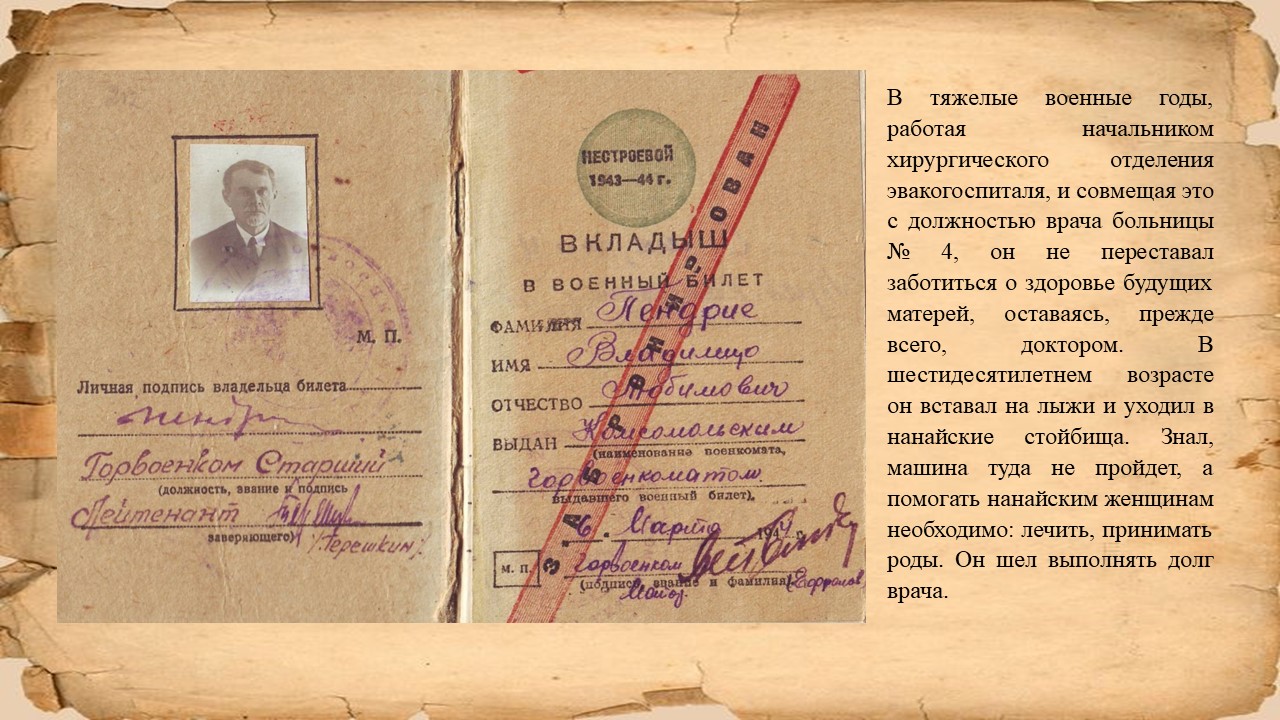 М. П.
Личная подпись владельца билета
Пендрие
Горвоенком Старший
(должность, звание и подпись
Лейтенант
заверяющего)
/Терешкин/
НЕСТРОЕВОЙ
1943—44 г.
ЗАБРОНИРОВАН
ВКЛАДЫШ
В ВОЕННЫЙ БИЛЕТ
ФАМИЛИЯ Пендрие
ИМЯ Владимир
ОТЧЕСТВО Любимович
ВЫДАН Комсомольским
(наименование военкомата,
Горвоенкоматом
выдавшего военный билет)
6 . Марта 1944 г.
М. П. Горвоенком
(подпись, звание и фамилия)
Майор
В тяжелые военные годы,
работая начальником
хирургического отделения
эвакогоспиталя, и совмещая это
с должностью врача больницы
№ 4, он не переставал
заботиться о здоровье будущих
матерей, оставаясь, прежде
всего, доктором. В
шестидесятилетнем возрасте
он вставал на лыжи и уходил в
нанайские стойбища. Знал,
машина туда не пройдет, а
помогать нанайским женщинам
необходимо: лечить, принимать
роды. Он шел выполнять долг
врача.